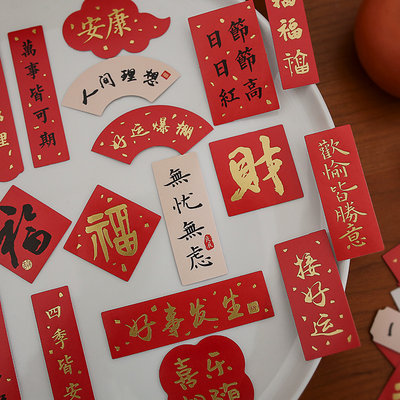 安康
萬事皆可期
人间理想
好运爆棚
日日紅
節節高
福福福
歡愉皆勝意
財
無忧無虑
福
福
接好运
四季皆安
好事发生
喜乐